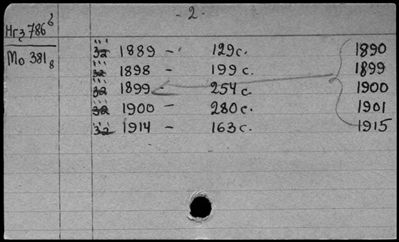 - 2 -
Нгз 786 6
Мо 381 8
32 1889 - 129 с. 1890
32 1898 - 199 с. 1899
32 1899 - 254 с. 1900
32 1900 - 280 с. 1901
32 1914 - 163 с. 1915